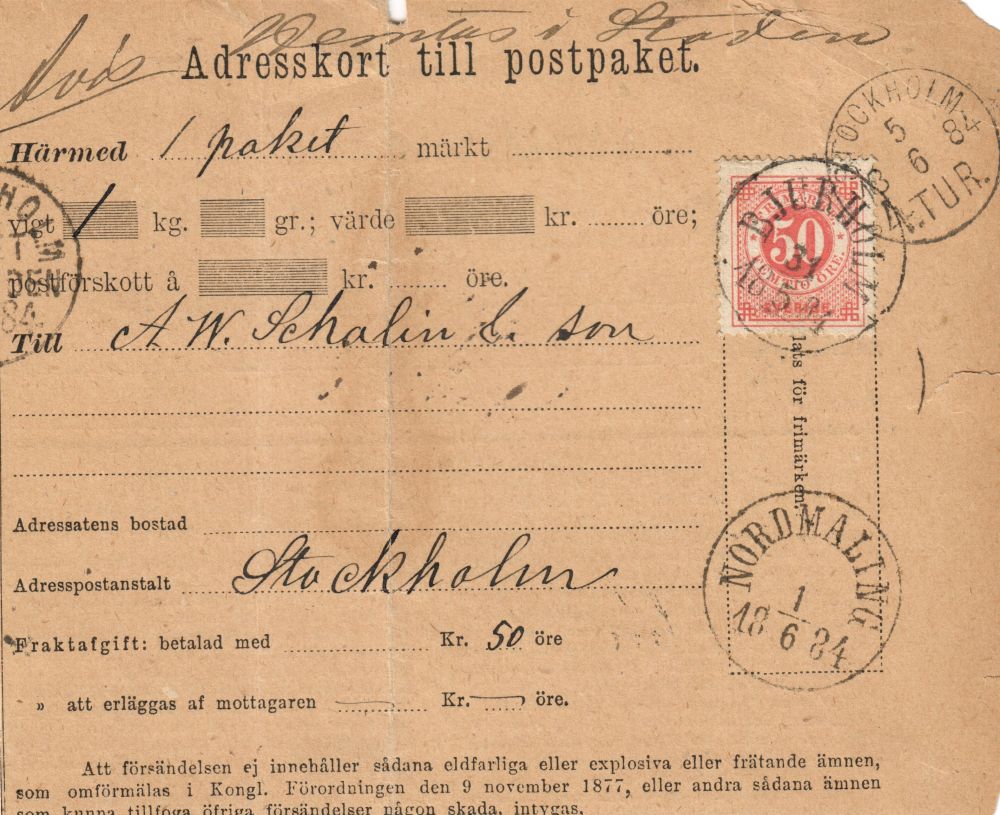 Hemtas i Staden
Avis
Adresskort till postpaket.
Härmed 1 paket märkt
vigt 1 kg. gr.; värde kr. öre;
postförskott å kr. öre.
Till A W. Schalin & son
Adressatens bostad
Adresspostanstalt Stockholm
Fraktafgift: betalad med Kr. 50 öre
» att erläggas af mottagaren Kr. öre.
Att försändelsen ej innehåller sådana eldfarliga eller explosiva eller frätande ämnen,
som omförmälas i Kongl. Förordningen den 9 november 1877, eller andra sådana ämnen
som kunna tillfoga öfriga försändelser någon skada, intygas.
STOCKHOLM
5 6 84
RETUR.
BJURHOLM
31
18 5 84
50
ÖRE.
lats för frimärken.
NORDMALING
1
18 6 84
HOLM
1
DEN
84.